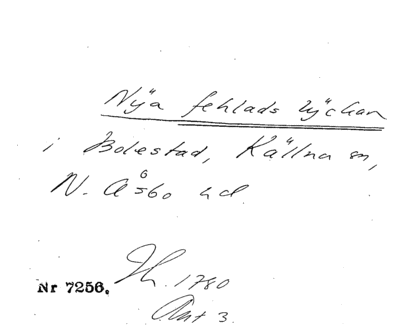 Nÿa fehlads lÿckan
i Bolestad, Källna sn,
N. Åsbo hd.
Nr 7256. 1780
Akt 3.